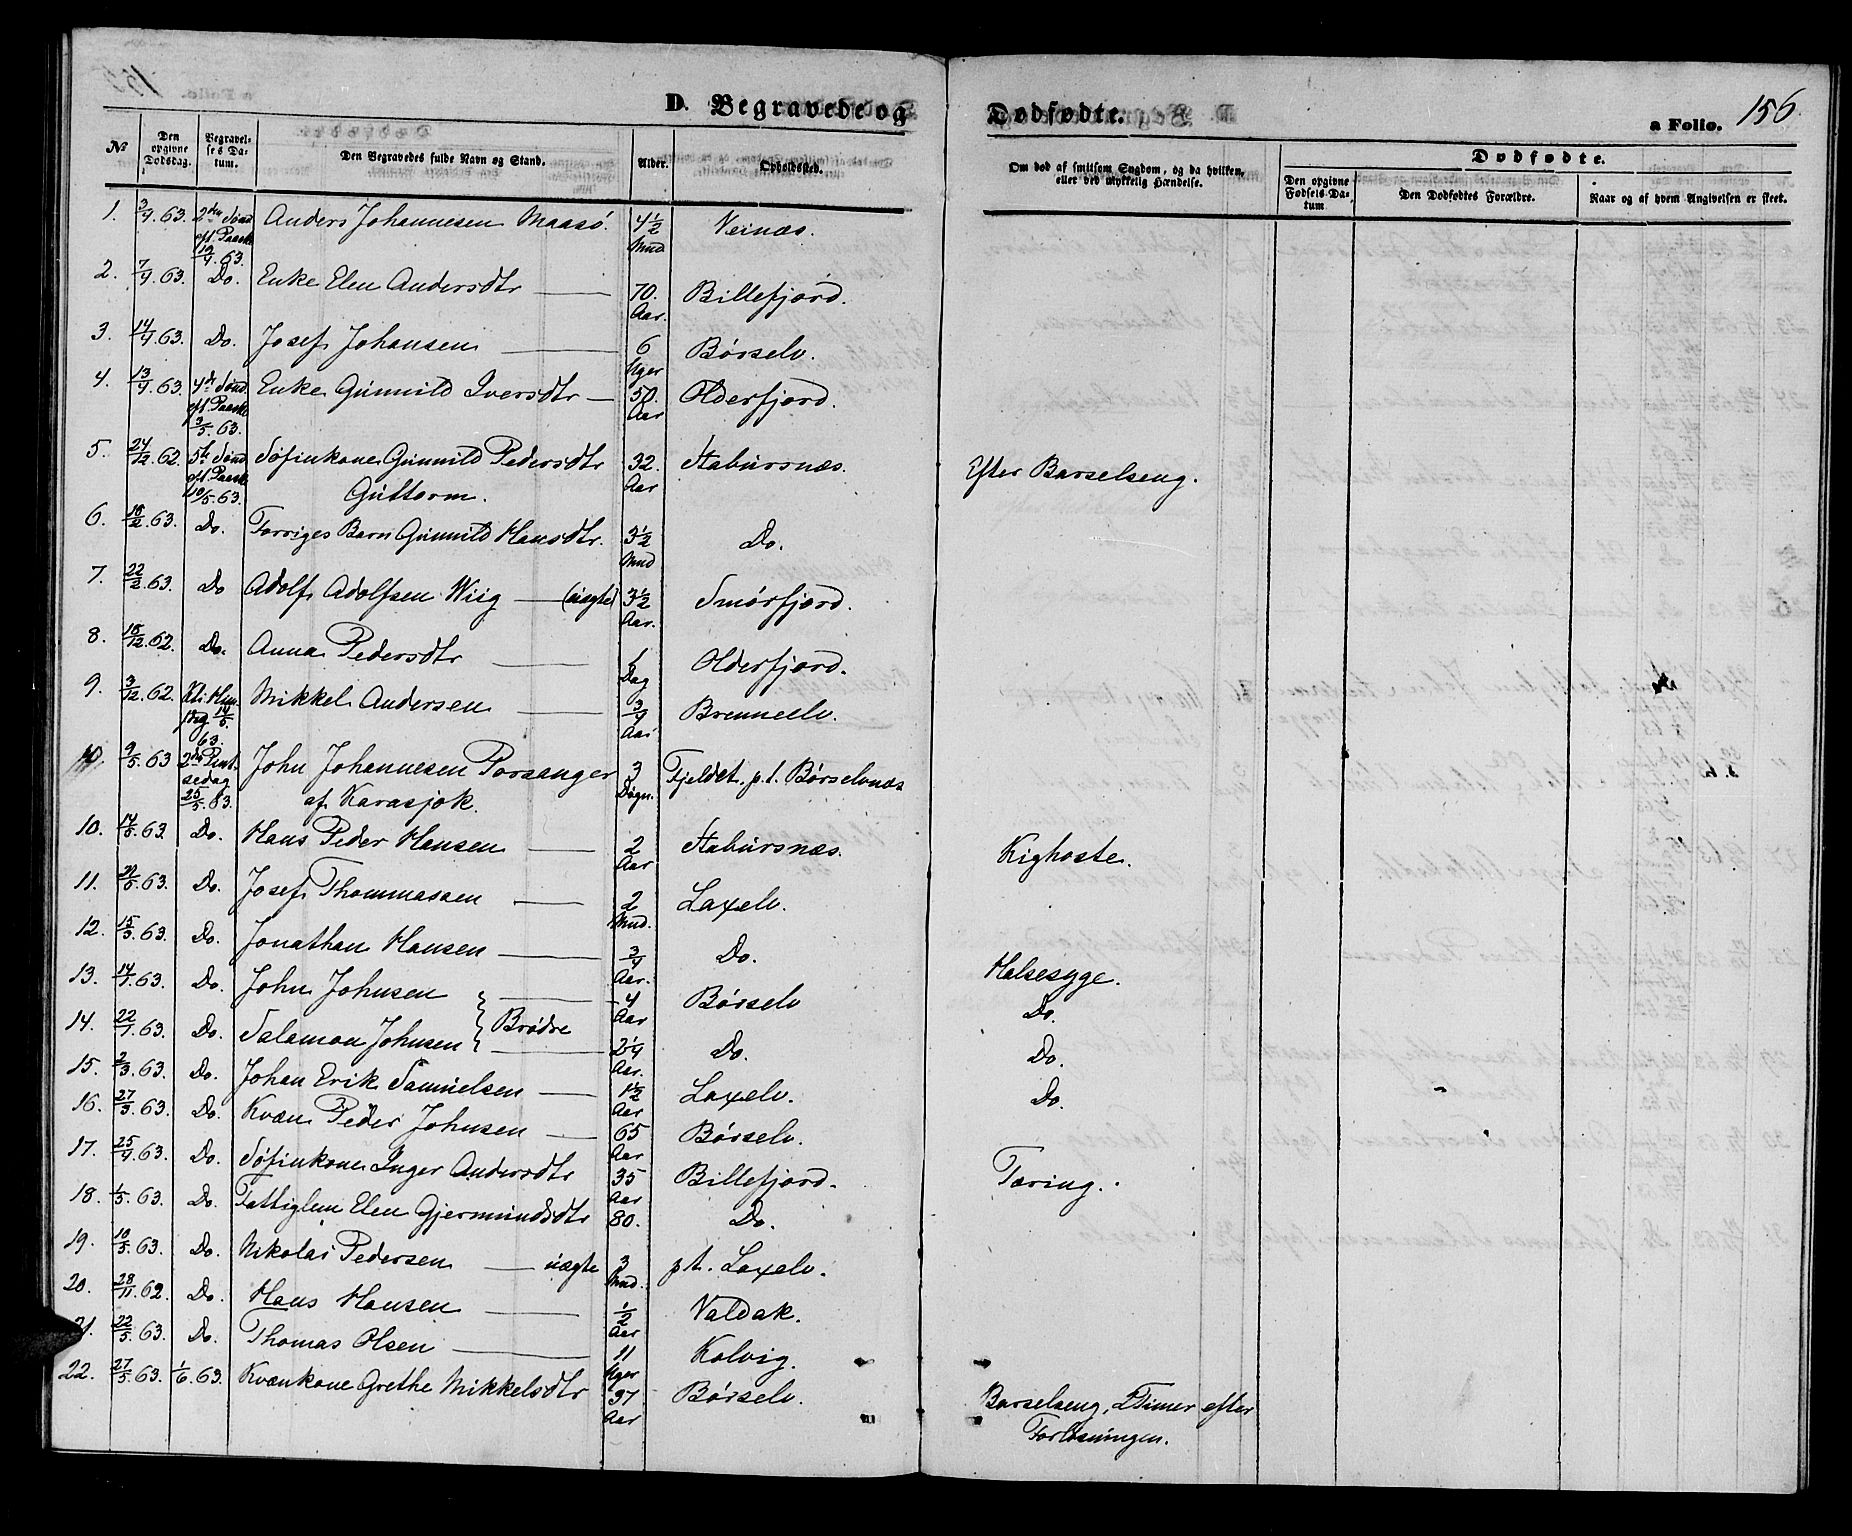 D. Begravede og Dødfødte. a Folio. 156
№ Den opgivne Dødsdag. Begravelses Datum. Den Begravedes fulde Navn og Stand. Alder. Opholdssted. Om død af smitsom Sygdom, og da hvilken, eller ved ulykkelig Hændelse. Dødfødte.
Den opgivne Fødsels Datum Den Dødfødtes Forældre. Naar og af hvem Angivelsen er skeet.
1. 3/4. 63. 2den Sønd. eft. Paaske 19/4. 63. Anders Johannesen Maasö. 4½ Mnd Veinæs.
2. 7/4. 63. Do. Enke Elen Andersdtr 70. Aar. Billefjord.
3. 14/4 63. Do. Josef Johansen 6 Uger Börselv.
4. 13/4 63. 4de Sønd. eft. Paaske 3/5. 63. Enke Gunnild Iversdtr 50. Aar Olderfjord.
5. 24/12 62. 5te Sønd eft. Paaske 10/5. 63. Söfinkone Gunnild Pedersdtr Guttorm. 32. Aar Staburnæs. Efter Barselseng.
6. 18/2 63. Do. Forriges Barn Gunnild Hansdtr. 3½ Mnd Do.
7. 22/2 63. Do Adolf Adolfsen Wiig (uægte) 3½ Aar. Smörfjord.
8. 18/12. 62. Do. Anna Pedersdtr 1 Dag Olderfjord.
9. 3/12 62. Kti Himfdag 14/5 63. Mikkel Andersen ¾ Aar Brennelv.
10. 9/5. 63 2den Pintsedag 25/5. 63. John Johannesen Porsanger af Karasjok. 3 Dögn. Fjeldet, p.t. Börselvnæs
10. 14/5. 63. Do. Hans Peder Hansen 2 Aar Staburnæs. Kighoste.
11. 21/5. 63. Do. Josef Thommassen 2 Mnd. Laxelv.
12. 15/3. 63. Do. Jonathan Hansen ¾ Aar. Do.
13. 14/1. 63. Do. John Johnsen } Brödre 4 Aar Börselv Halsesyge.
14. 22/1. 63. Do. Salamon Johnsen } 2¼ Aar. Do. Do.
15. 2/3. 63. Do. Johan Erik Samuelsen 1½ Aar Laxelv. Do.
16. 27/3. 63. Do. Kvæn Peder Johnsen 65 Aar Börselv. Do.
17. 25/4. 63. Do. Söfinkone Inger Andersdtr 35 Aar Billefjord. Tæring.
18. 1/5. 63. Do. Fattiglem Elen Gjermundsdtr 80. Do.
19. 10/5. 63. Do. Nikolai Pedersen uægte 3 Mnd. p.t. Laxelv.
20. 28/11. 62. Do. Hans Hansen ½ Aar Valdak.
21. 22/5. 63. Do. Thomas Olsen 11 Uger Kolvig.
22. 27/5. 63. 1/6. 63. Kvænkone Grethe Mikkelsdtr 37 Aar Börselv. Barselseng, 2 Timer efter Forlösningen.